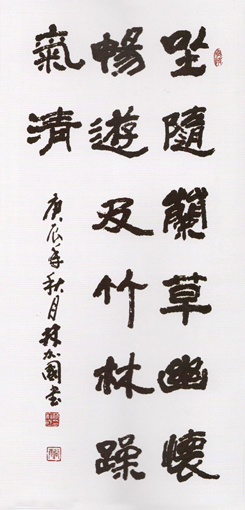 坐隨蘭草幽懷
暢遊及竹林躁
氣清
庚辰年秋月林國書